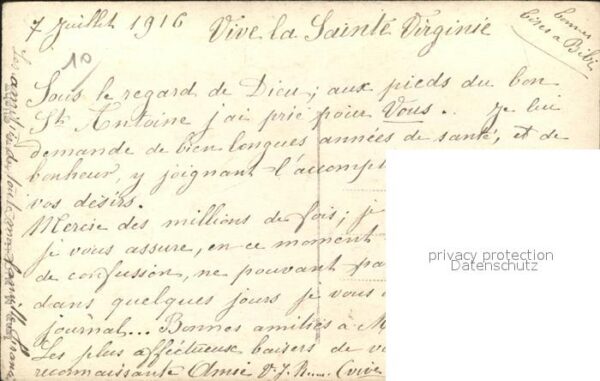 7 Juillet 1916 Vive la Sainte Virginie
bonnes
bises a Bébé
10
Sous le regard de Dieu; aux pieds du bon
St Antoine j'ai prié pour Vous.. Je lui
demande de bien longues années de santé, et de
bonheur, y joignant l'accompl
vos désirs.
Mercie des millions de fois; je
je vous assure, en ce moment
de confusion, ne pouvant pa
dans quelques jours je vous
journal... Bonnes amitiés à M
Les plus affectueux baisers de vo
reconnaissante Amie
privacy protection
Datenschutz